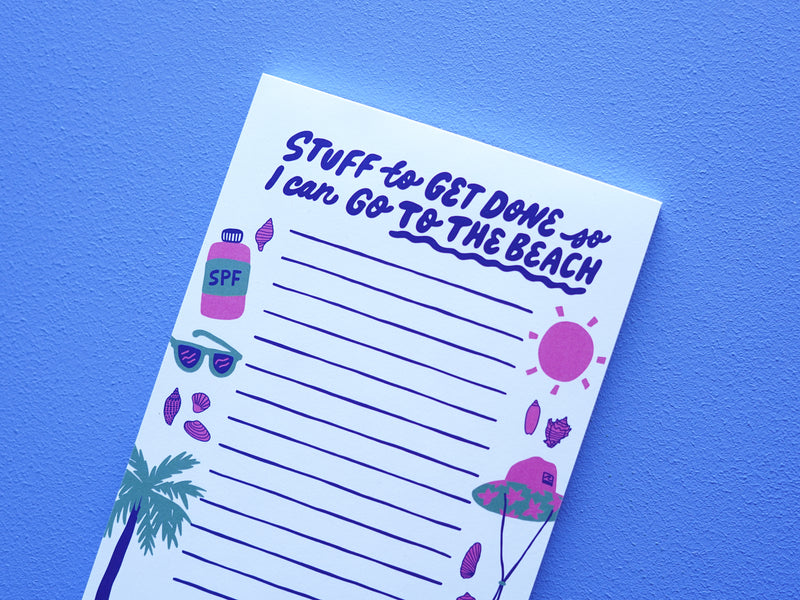 STUFF to GET DONE so
I can GO TO THE BEACH
SPF